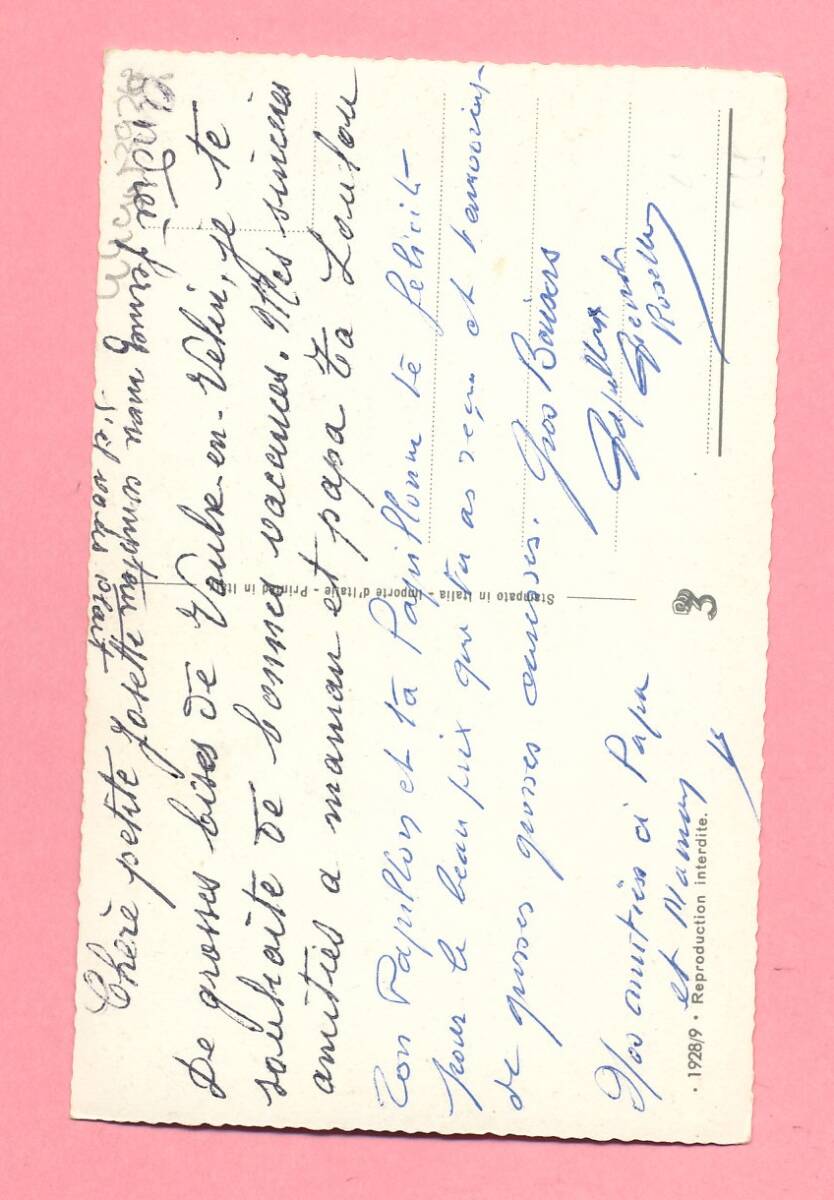 Chère petite Josette
De grosses bises de Vaulx-en-Velin, je te
souhaite de bonnes vacances. Mes sincères
amitiés a maman et papa ta Loulou
Ton Papillon et ta Papillonne te félicite
pour le beau prix que tu as reçu et
de grosses grosses caresses. Gros Baisers
Nos amitiés a Papa
et Maman
s'il vous plait
Stampato in Italia - Importé d'Italie - Printed in It
3
• 1928/9 • Reproduction interdite.